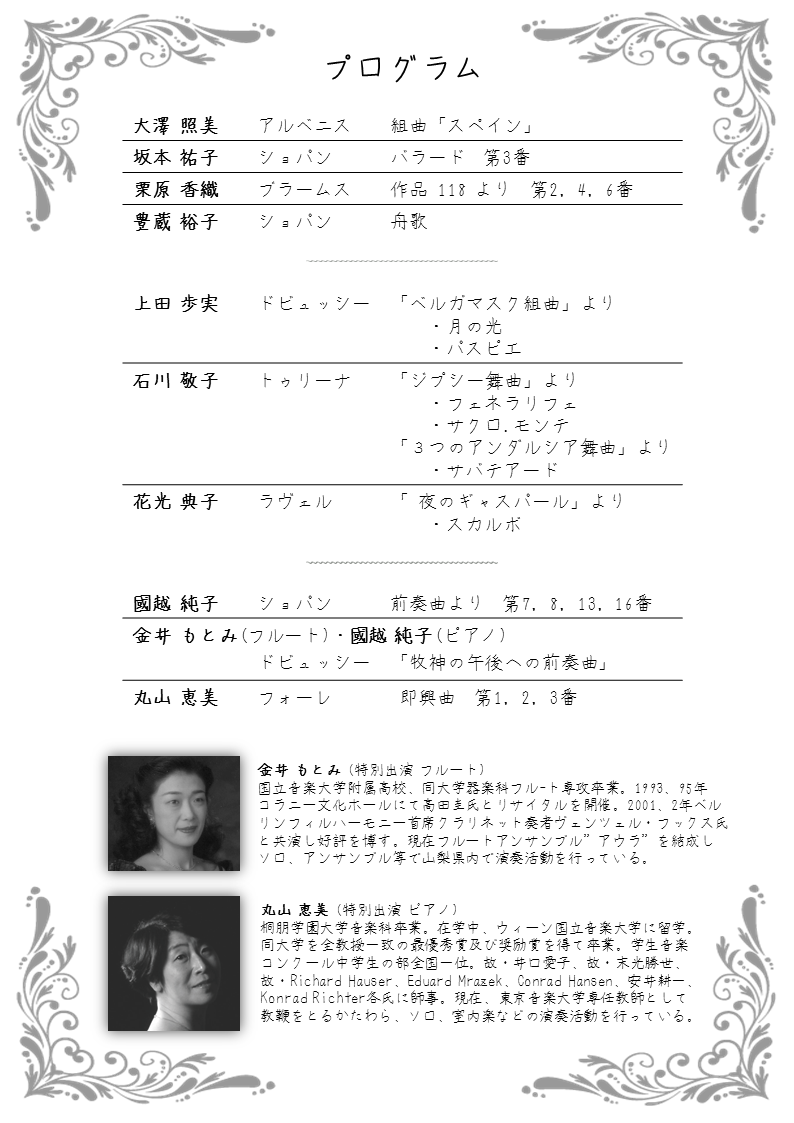 プログラム
大澤 照美 アルベニス 組曲「スペイン」
坂本 祐子 ショパン バラード 第3番
栗原 香織 ブラームス 作品 118 より 第2, 4, 6番
豊蔵 裕子 ショパン 舟歌
上田 歩実 ドビュッシー 「ベルガマスク組曲」より
・月の光
・パスピエ
石川 敬子 トゥリーナ 「ジプシー舞曲」より
・フェネラリフェ
・サクロ.モンテ
「３つのアンダルシア舞曲」より
・サパテアード
花光 典子 ラヴェル 「 夜のギャスパール」より
・スカルボ
國越 純子 ショパン 前奏曲より 第7, 8, 13, 16番
金井 もとみ(フルート)・國越 純子(ピアノ)
ドビュッシー 「牧神の午後への前奏曲」
丸山 恵美 フォーレ 即興曲 第1, 2, 3番
金井 もとみ (特別出演 フルート)
国立音楽大学附属高校、同大学器楽科フル-ト専攻卒業。1993、95年
コラニー文化ホールにて高田圭氏とリサイタルを開催。2001、2年ベル
リンフィルハーモニー首席クラリネット奏者ヴェンツェル・フックス氏
と共演し好評を博す。現在フルートアンサンブル”アウラ”を結成し
ソロ、アンサンブル等で山梨県内で演奏活動を行っている。
丸山 恵美 (特別出演 ピアノ)
桐朋学園大学音楽科卒業。在学中、ウィーン国立音楽大学に留学。
同大学を全教授一致の最優秀賞及び奨励賞を得て卒業。学生音楽
コンクール中学生の部全国一位。故・井口愛子、故・末光勝世、
故・Richard Hauser、Eduard Mrazek、Conrad Hansen、安井耕一、
Konrad Richter各氏に師事。現在、東京音楽大学専任教師として
教鞭をとるかたわら、ソロ、室内楽などの演奏活動を行っている。